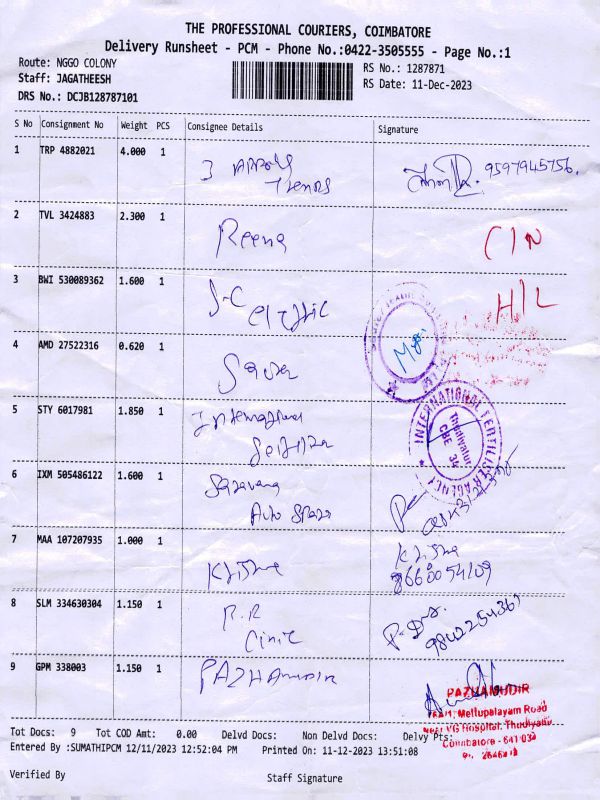 THE PROFESSIONAL COURIERS, COIMBATORE
Delivery Runsheet - PCM - Phone No.:0422-3505555 - Page No.:1
Route: NGGO COLONY
Staff: JAGATHEESH
DRS No.: DCJB128787101
RS No.: 1287871
RS Date: 11-Dec-2023
S No Consignment No Weight PCS Consignee Details Signature
1 TRP 4882021 4.000 1 9597945756.
2 TVL 3424883 2.300 1 Reena C/N
3 BWI 530089362 1.600 1 H/L
4 AMD 27522316 0.620 1
INTERNATIONAL FERTILISER AGENCY
Thudiyalur
CBE 34
5 STY 6017981 1.850 1 International
6 IXM 505486122 1.600 1 Saravana
Auto Spares
7 MAA 107207935 1.000 1 Krishna Krishna
8660054109
8 SLM 334630304 1.150 1 R.R
Clinic
9842254361
9 GPM 338003 1.150 1 PAZHAMUDIR
PAZHAMUDIR
Mettupalayam Road
Near VG Hospital, Thudiyalur
Coimbatore - 641 034
Tot Docs: 9 Tot COD Amt: 0.00 Delvd Docs: Non Delvd Docs: Delvy Pts:
Entered By :SUMATHIPCM 12/11/2023 12:52:04 PM Printed On: 11-12-2023 13:51:08
Verified By Staff Signature